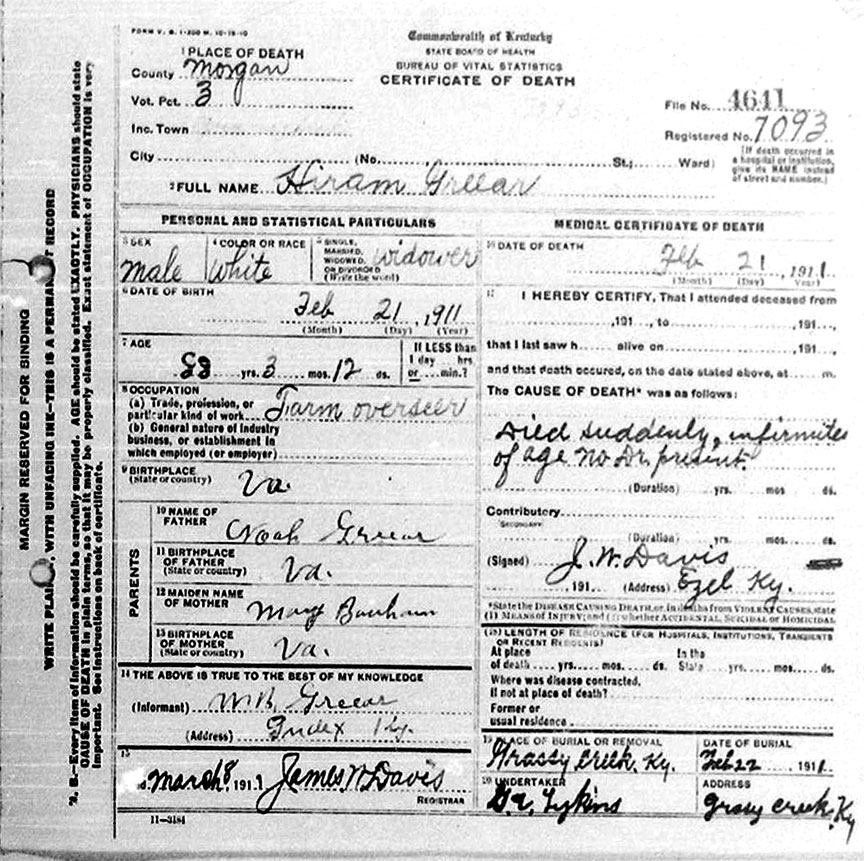 FORM V. S. 1-200 M. 10-15-10
Commonwealth of Kentucky
STATE BOARD OF HEALTH
BUREAU OF VITAL STATISTICS
CERTIFICATE OF DEATH
1 PLACE OF DEATH
County Morgan
Vot. Pct. 3
Inc. Town
City (No. St.; Ward)
File No. 4641
Registered No. 7093
(If death occurred in
a hospital or institution,
give its NAME instead
of street and number.)
2 FULL NAME Hiram Greear
PERSONAL AND STATISTICAL PARTICULARS
3 SEX
Male
4 COLOR OR RACE
White
5 SINGLE,
MARRIED,
WIDOWED,
OR DIVORCED
(Write the word)
widower
6 DATE OF BIRTH
Feb 21, 1911
(Month) (Day) (Year)
7 AGE
yrs. 3 mos. 12 ds.
If LESS than
1 day ... hrs.
or ... min.?
8 OCCUPATION
(a) Trade, profession, or
particular kind of work Farm overseer
(b) General nature of industry
business, or establishment in
which employed (or employer)
9 BIRTHPLACE
(State or country)
Va.
PARENTS
10 NAME OF
FATHER
Noah Greear
11 BIRTHPLACE
OF FATHER
(State or country)
Va.
12 MAIDEN NAME
OF MOTHER
Mary
13 BIRTHPLACE
OF MOTHER
(State or country)
Va.
14 THE ABOVE IS TRUE TO THE BEST OF MY KNOWLEDGE
(Informant) W.B. Greear
(Address) Index Ky.
15
March 8 1911 James W Davis
REGISTRAR
11-3184
MEDICAL CERTIFICATE OF DEATH
16 DATE OF DEATH
Feb 21, 1911
(Month) (Day) (Year)
17 I HEREBY CERTIFY, That I attended deceased from
,191..., to ,191...,
that I last saw h... alive on ,191...,
and that death occured, on the date stated above, at m.
The CAUSE OF DEATH* was as follows:
Died suddenly, infirmites
of age no Dr. present.
(Duration) yrs. mos ds.
Contributory
SECONDARY
(Duration) yrs. mos. ds.
(Signed) J. W. Davis
,191... (Address) Ezel Ky.
*State the DISEASE CAUSING DEATH, or, in deaths from VIOLENT CAUSES, state
(1) MEANS OF INJURY; and (2) whether ACCIDENTAL, SUICIDAL OR HOMICIDAL
(18) LENGTH OF RESIDENCE (FOR HOSPITALS, INSTITUTIONS, TRANSIENTS
OR RECENT RESIDENTS)
At place In the
of death yrs. mos. ds. State yrs. mos. ds.
Where was disease contracted.
If not at place of death?
Former or
usual residence
19 PLACE OF BURIAL OR REMOVAL
Grassy Creek, Ky.
DATE OF BURIAL
Feb 22 1911
20 UNDERTAKER
Lykins
ADDRESS
Grassy Creek, Ky
MARGIN RESERVED FOR BINDING
WRITE PLAINLY, WITH UNFADING INK—THIS IS A PERMANENT RECORD
N. B.—Every item of information should be carefully supplied. AGE should be stated EXACTLY. PHYSICIANS should state
CAUSE OF DEATH in plain terms, so that it may be properly classified. Exact statement of OCCUPATION is very
important. See instructions on back of certificate.